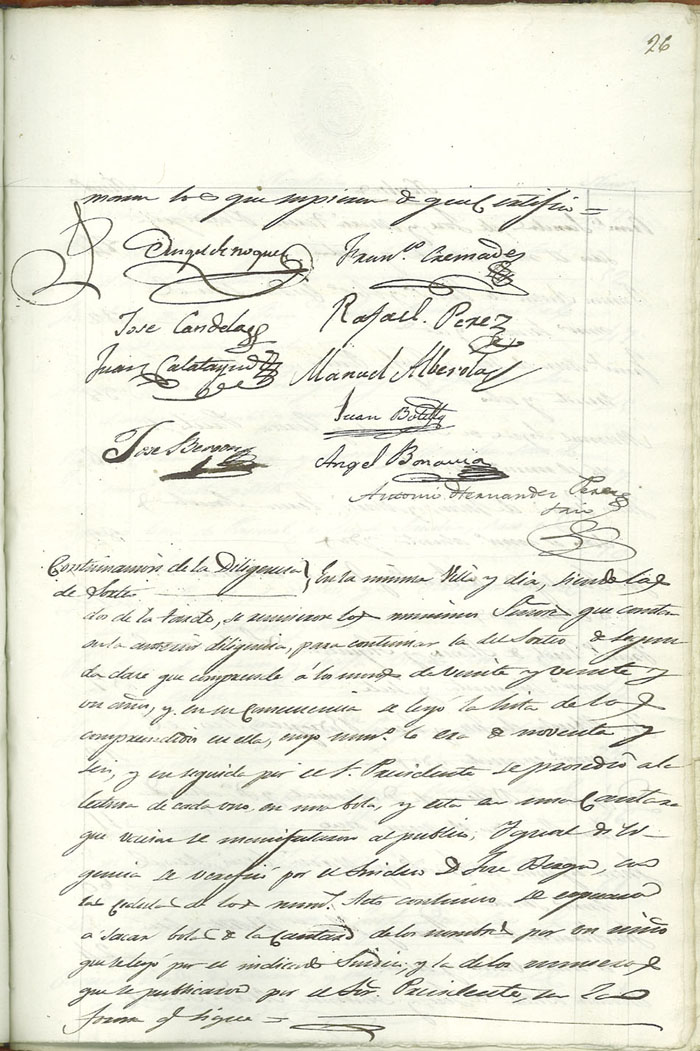 26
maron los que supieron de que Certifico =
Angel de Noguera Fran.co Cremades
Jose Candela Rafael Perez
Juan Calatayud Manuel Alberola
Juan Botella
Jose Bergon Angel Bonavia
Antonio Hernandez Perez
Srio
Continuacion de la Diligencia En la misma Villa y dia, siendo las
de Sorteo
dos de la tarde, se reunieron los mismos Señores que constan
en la anterior diligencia, para continuar la del Sorteo de segun
da clase que comprende á los mozos de veinte y veinte y
un años, y en su Consecuencia se leyó la lista de los
comprendidos en ella, cuyo num.o lo era de noventa y
seis, y en seguida por el S. Presidente se procedió a la
lectura de cada uno en una bola, y esta en una Cantara
que vacias se manifestaron al publico, Igual dili-
gencia se verificó por el Sindico D. Jose Bergon, con
las Cedulas de los num.s Acto continuo se
á sacar bolas de la Cantara de los nombres por un niño
que se leyó por el indicado Sindico, y la de los numeros
que se publicaron por el Sr. Presidente, en la
forma q sigue =